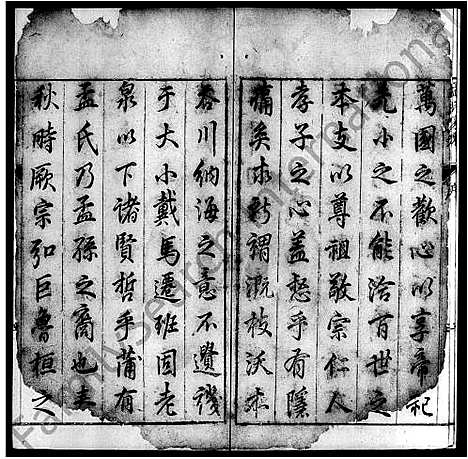 萬國之歡心以享帝祀
先小之不能洽百世之
本支以尊祖敬宗仁人
孝子之心蓋愁乎有隱
痛矣求所謂溉枝沃本
容川納海之意不遺
于大小戴馬遷班固老
泉以下諸賢哲乎蒲有
孟氏乃孟孫之裔也春
秋時厥宗弘巨魯桓之
FamilySearch International